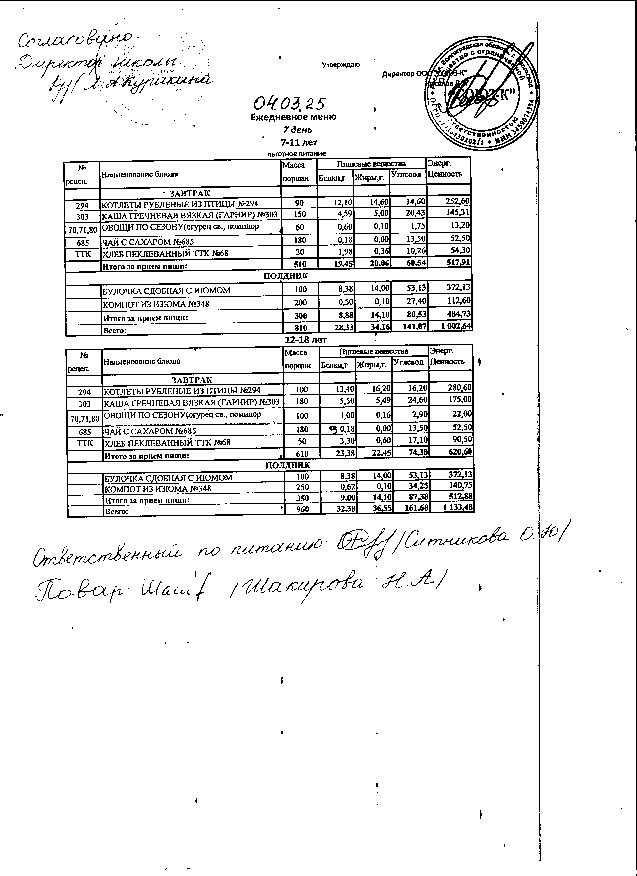 Согласовано
Директор школы
Л. А. Курикина
Утверждаю
Директор ООО "СОЮЗ-К"
"СОЮЗ-К"
04.03.25
Ежедневное меню
7 день
7-11 лет
льготное питание
№ рецеп. Наименование блюда Масса порции Пищевые вещества Энерг. Ценность
Белки,г Жиры,г. Углевод
ЗАВТРАК
294 КОТЛЕТЫ РУБЛЕНЫЕ ИЗ ПТИЦЫ №294 90 12,10 14,60 14,60 252,60
303 КАША ГРЕЧНЕВАЯ ВЯЗКАЯ (ГАРНИР) №303 150 4,59 5,00 20,43 145,31
70,71,80 ОВОЩИ ПО СЕЗОНУ(огурец св., помидор 60 0,60 0,10 1,75 13,20
685 ЧАЙ С САХАРОМ №685 180 0,18 0,00 13,50 52,50
ТТК ХЛЕБ ПЕКЛЕВАННЫЙ ТТК №68 30 1,98 0,36 10,26 54,30
Итого за прием пищи: 510 19,45 20,06 60,54 517,91
ПОЛДНИК
БУЛОЧКА СДОБНАЯ С ИЮМОМ 100 8,38 14,00 53,13 372,13
КОМПОТ ИЗ ИЗЮМА №348 200 0,50 0,10 27,40 112,60
Итого за прием пищи: 300 8,88 14,10 80,53 484,73
Всего: 810 28,33 34,16 141,07 1 002,64
12-18 лет
№ рецеп. Наименование блюда Масса порции Пищевые вещества Энерг. Ценность
Белки,г Жиры,г. Углевод
ЗАВТРАК
294 КОТЛЕТЫ РУБЛЕНЫЕ ИЗ ПТИЦЫ №294 100 13,40 16,20 16,20 280,60
303 КАША ГРЕЧНЕВАЯ ВЯЗКАЯ (ГАРНИР) №303 180 5,50 5,49 24,60 175,00
70,71,80 ОВОЩИ ПО СЕЗОНУ(огурец св., помидор 100 1,00 0,16 2,90 22,00
685 ЧАЙ С САХАРОМ №685 180 0,18 0,00 13,50 52,50
ТТК ХЛЕБ ПЕКЛЕВАННЫЙ ТТК №68 50 3,30 0,60 17,10 90,50
Итого за прием пищи: 610 23,38 22,45 74,30 620,60
ПОЛДНИК
БУЛОЧКА СДОБНАЯ С ИЮМОМ 100 8,38 14,00 53,13 372,13
КОМПОТ ИЗ ИЗЮМА №348 250 0,62 0,10 34,25 140,75
Итого за прием пищи: 350 9,00 14,10 87,38 512,88
Всего: 960 32,38 36,55 161,68 1 133,48
Ответственный по питанию /Ситникова О.Ю/
Повар /Шакирова Н.А/